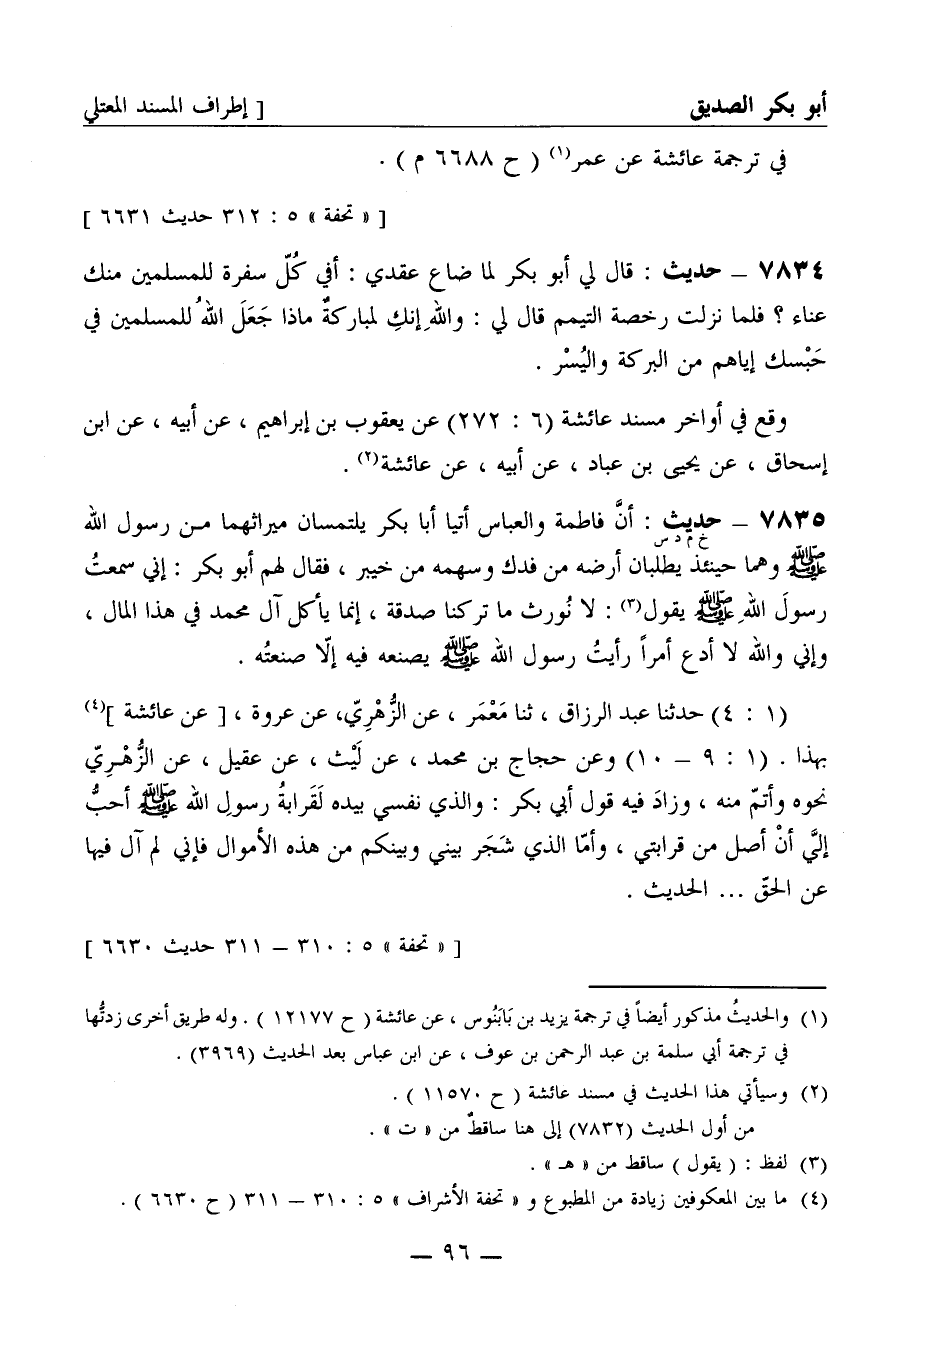 أبو بكر الصديق [ إطراف المسند المعتلي
في ترجمة عائشة عن عمر(١) ( ح ٦٦٨٨ م ) .
[ « تحفة » ٥ : ٣١٢ حديث ٦٦٣١ ]
٧٨٣٤ – حديث : قال لي أبو بكر لما ضاع عقدي : أفي كُلّ سفرة للمسلمين منك
عناء ؟ فلما نزلت رخصة التيمم قال لي : واللهِ إنكِ لمباركةٌ ماذا جَعَلَ اللهُ للمسلمين في
حَبْسك إياهم من البركة واليُسْر .
وقع في أواخر مسند عائشة (٦ : ٢٧٢) عن يعقوب بن إبراهيم ، عن أبيه ، عن ابن
إسحاق ، عن يحيى بن عباد ، عن أبيه ، عن عائشة(٢) .
٧٨٣٥ – حديث : أنَّ فاطمة والعباس أتيا أبا بكر يلتمسان ميراثهما من رسول الله
خ م د س
ﷺ وهما حينئذ يطلبان أرضه من فدك وسهمه من خيبر ، فقال لهم أبو بكر : إني سمعتُ
رسولَ اللهِ ﷺ يقول(٣) : لا نُورث ما تركنا صدقة ، إنما يأكل آل محمد في هذا المال ،
وإني والله لا أدع أمراً رأيتُ رسول الله ﷺ يصنعه فيه إلّا صنعتُه .
(١ : ٤) حدثنا عبد الرزاق ، ثنا مَعْمَر ، عن الزُّهْرِيّ، عن عروة ، [ عن عائشة ](٤)
بهذا . (١ : ٩ – ١٠) وعن حجاج بن محمد ، عن لَيْث ، عن عقيل ، عن الزُّهْرِيّ
نحوه وأتمّ منه ، وزادَ فيه قول أبي بكر : والذي نفسي بيده لَقَرابةُ رسولِ الله ﷺ أحبُّ
إليَّ أنْ أصل من قرابتي ، وأمّا الذي شَجَر بيني وبينكم من هذه الأموال فإني لم آل فيها
عن الحقّ ... الحديث .
[ « تحفة » ٥ : ٣١٠ – ٣١١ حديث ٦٦٣٠ ]
(١) والحديثُ مذكور أيضاً في ترجمة يزيد بن بَابَنُوس ، عن عائشة ( ح ١٢١٧٧ ) . وله طريق أخرى زدتُّها
في ترجمة أبي سلمة بن عبد الرحمن بن عوف ، عن ابن عباس بعد الحديث (٣٩٦٩) .
(٢) وسيأتي هذا الحديث في مسند عائشة ( ح ١١٥٧٠ ) .
من أول الحديث (٧٨٣٢) إلى هنا ساقطٌ من « ت » .
(٣) لفظ : ( يقول ) ساقط من « هـ » .
(٤) ما بين المعكوفين زيادة من المطبوع و « تحفة الأشراف » ٥ : ٣١٠ – ٣١١ ( ح ٦٦٣٠ ) .
– ٩٦ –